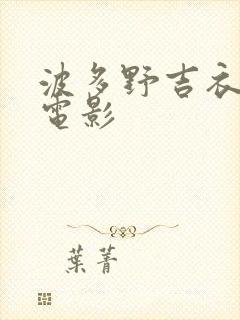 波多野吉衣
電影
葉菁